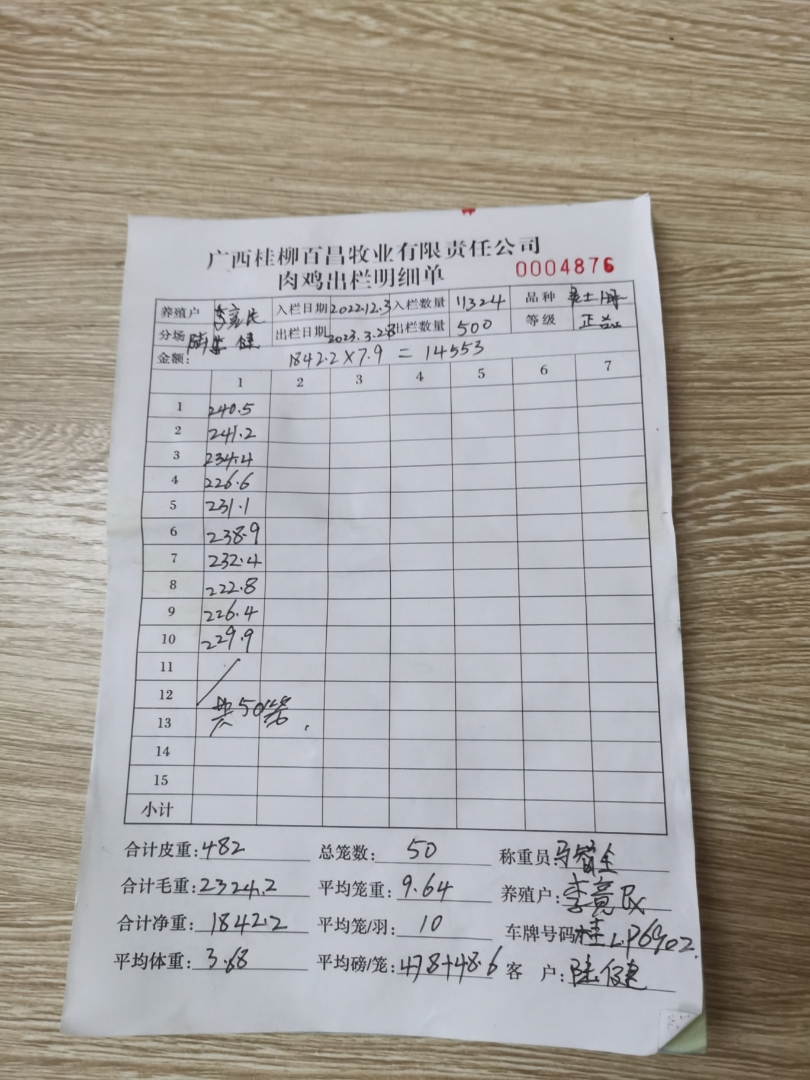 广西桂柳百昌牧业有限责任公司
肉鸡出栏明细单 0004876
养殖户 李竟民 入栏日期 2022.12.3 入栏数量 11324 品种
分场 出栏日期 2023.3.28 出栏数量 500 等级 正品
金额: 1842.2×7.9=14553
1 2 3 4 5 6 7
1 240.5
2 241.2
3 234.4
4 226.6
5 231.1
6 238.9
7 232.4
8 222.8
9 226.4
10 229.9
11
12
13 共50笼.
14
15
小计
合计皮重:482 总笼数:50 称重员:
合计毛重:2324.2 平均笼重:9.64 养殖户:李竟民
合计净重:1842.2 平均笼/羽:10 车牌号码:桂L.P6902.
平均体重:3.68 平均磅/笼:478+48.6 客户:陆健